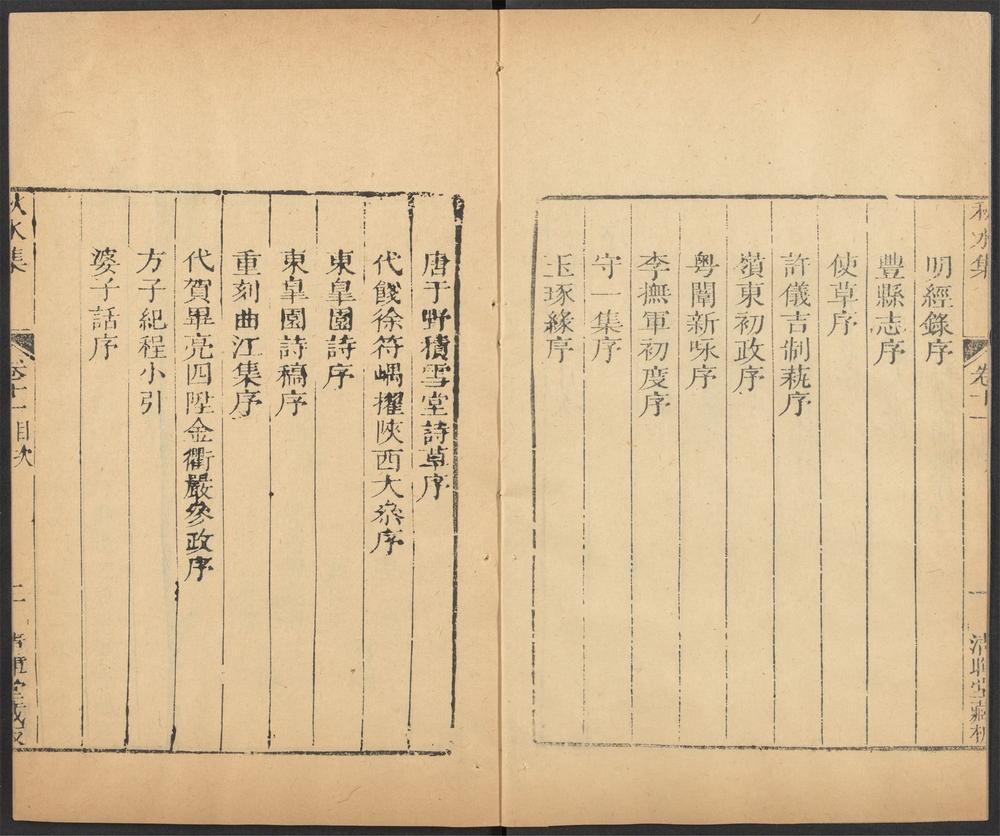 秋水集 卷十一 一 清畏堂藏板
明經錄序
豐縣志序
使草序
許儀吉制萟序
嶺東初政序
粵闈新咏序
李撫軍初度序
守一集序
玉琢緣序
唐于野積雪堂詩草序
代餞徐符嵎擢陜西大叅序
東臯園詩序
東臯園詩稿序
重刻曲江集序
代賀畢亮四陞金衢嚴叅政序
方子紀程小引
婆子話序
秋水集 卷十一目次 二